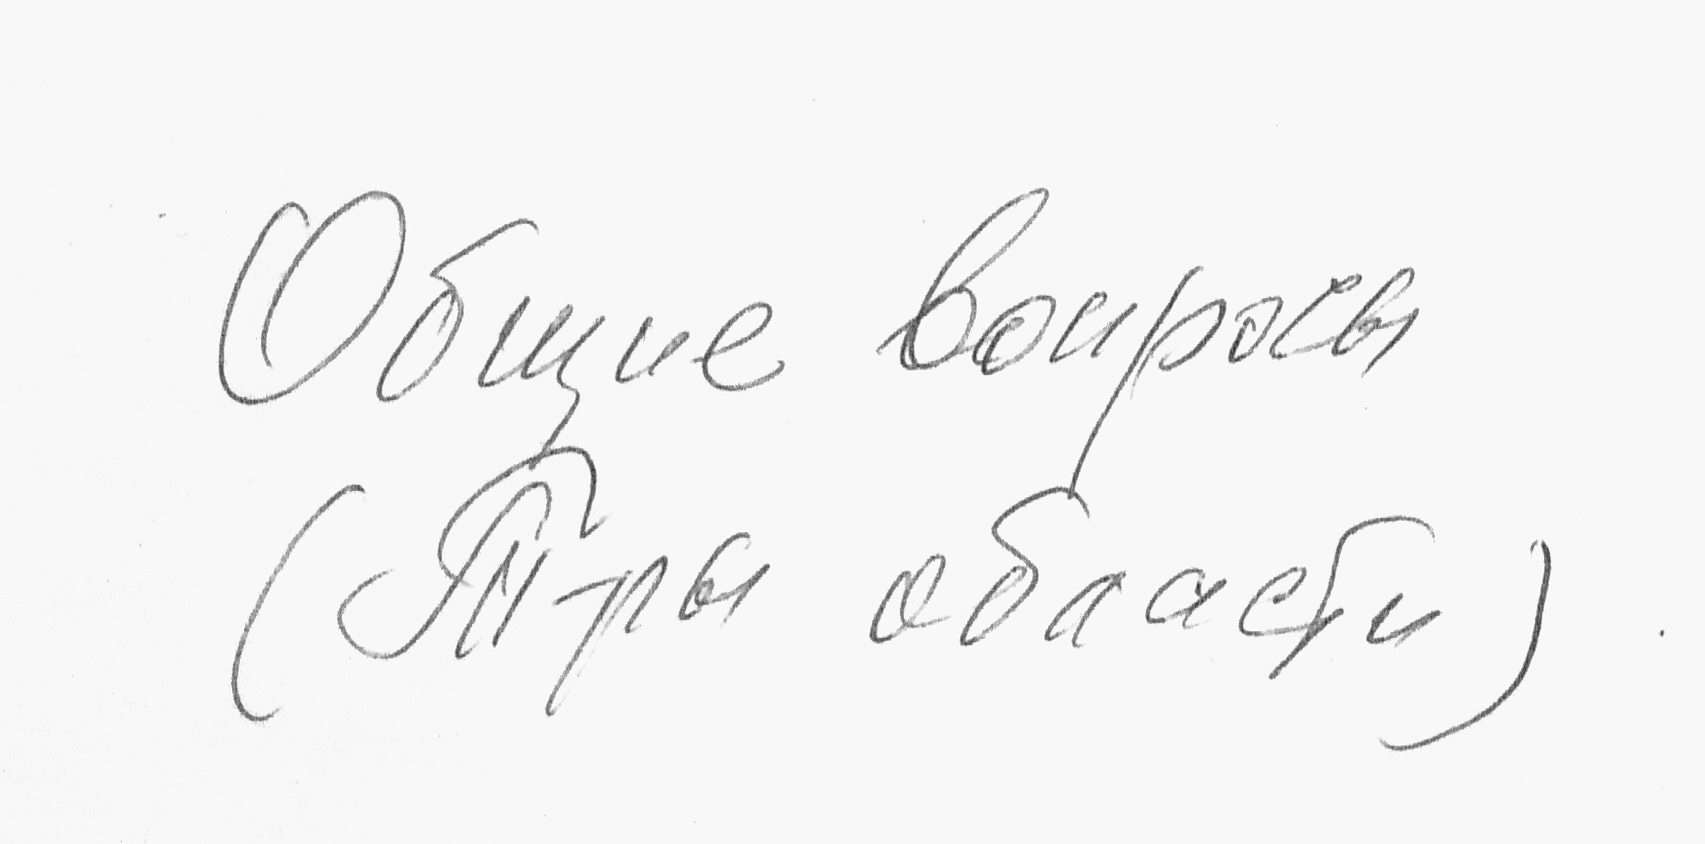 Общие вопросы
(Т-ры области)